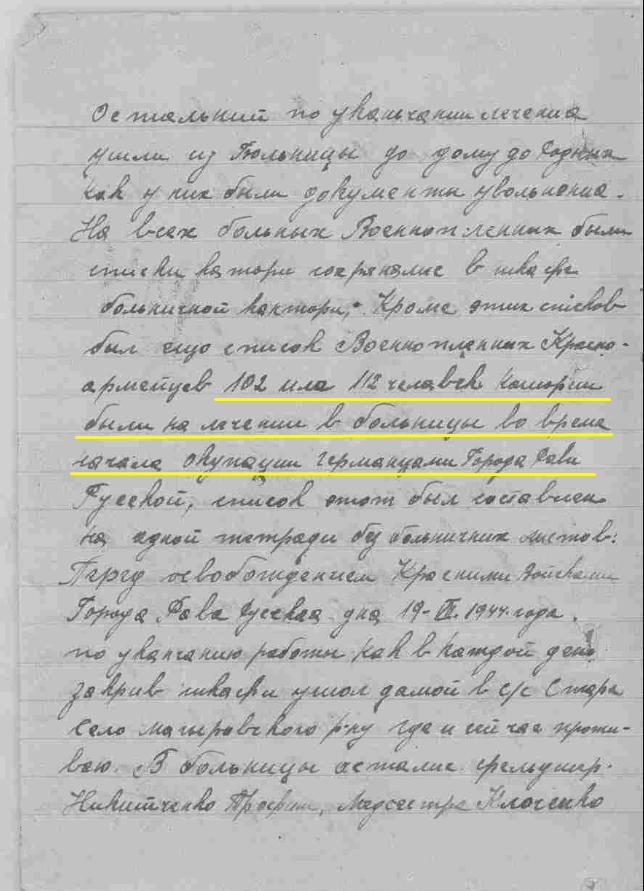 Остальний по уканчании лечения
ушли из Больницы до дому до Родных
как у них были документы увольнениа.
На всех больных Военнопленних были
списки катори сохранялис в шкафе
больничной канторы. Кроме этих списков
был ещо список Военнопленних Красно-
армейцев 102 или 112 человек катории
были на лечении в больницы во врема
начала окупации германцами Города Рави
Русской, список этот был составлен
на одной тетради без больничних листов:
Перед освобождением Красними Войсками
Города Рава Русскаа дна 19-VII.1944 года.
по уканчанию работы как в каждой день
закрив шкафи ушол дамой в с/с Стара
село магыровского р-ну где и сейчас прожи-
ваю. В больницы астались фельдшер.
Никитченко Трофим, Медсестра Клоченко